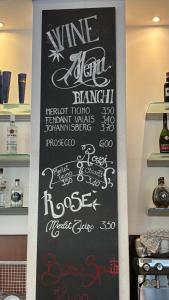 WINE
Menu
BIANCHI
MERLOT TICINO 3.50
FENDANT VALAIS 3.40
JOHANNISBERG 3.70
PROSECCO 6.00
Rossi
Merlot Chianti
3.50 3.40
ROSE'
Merlot Ticino 3,50